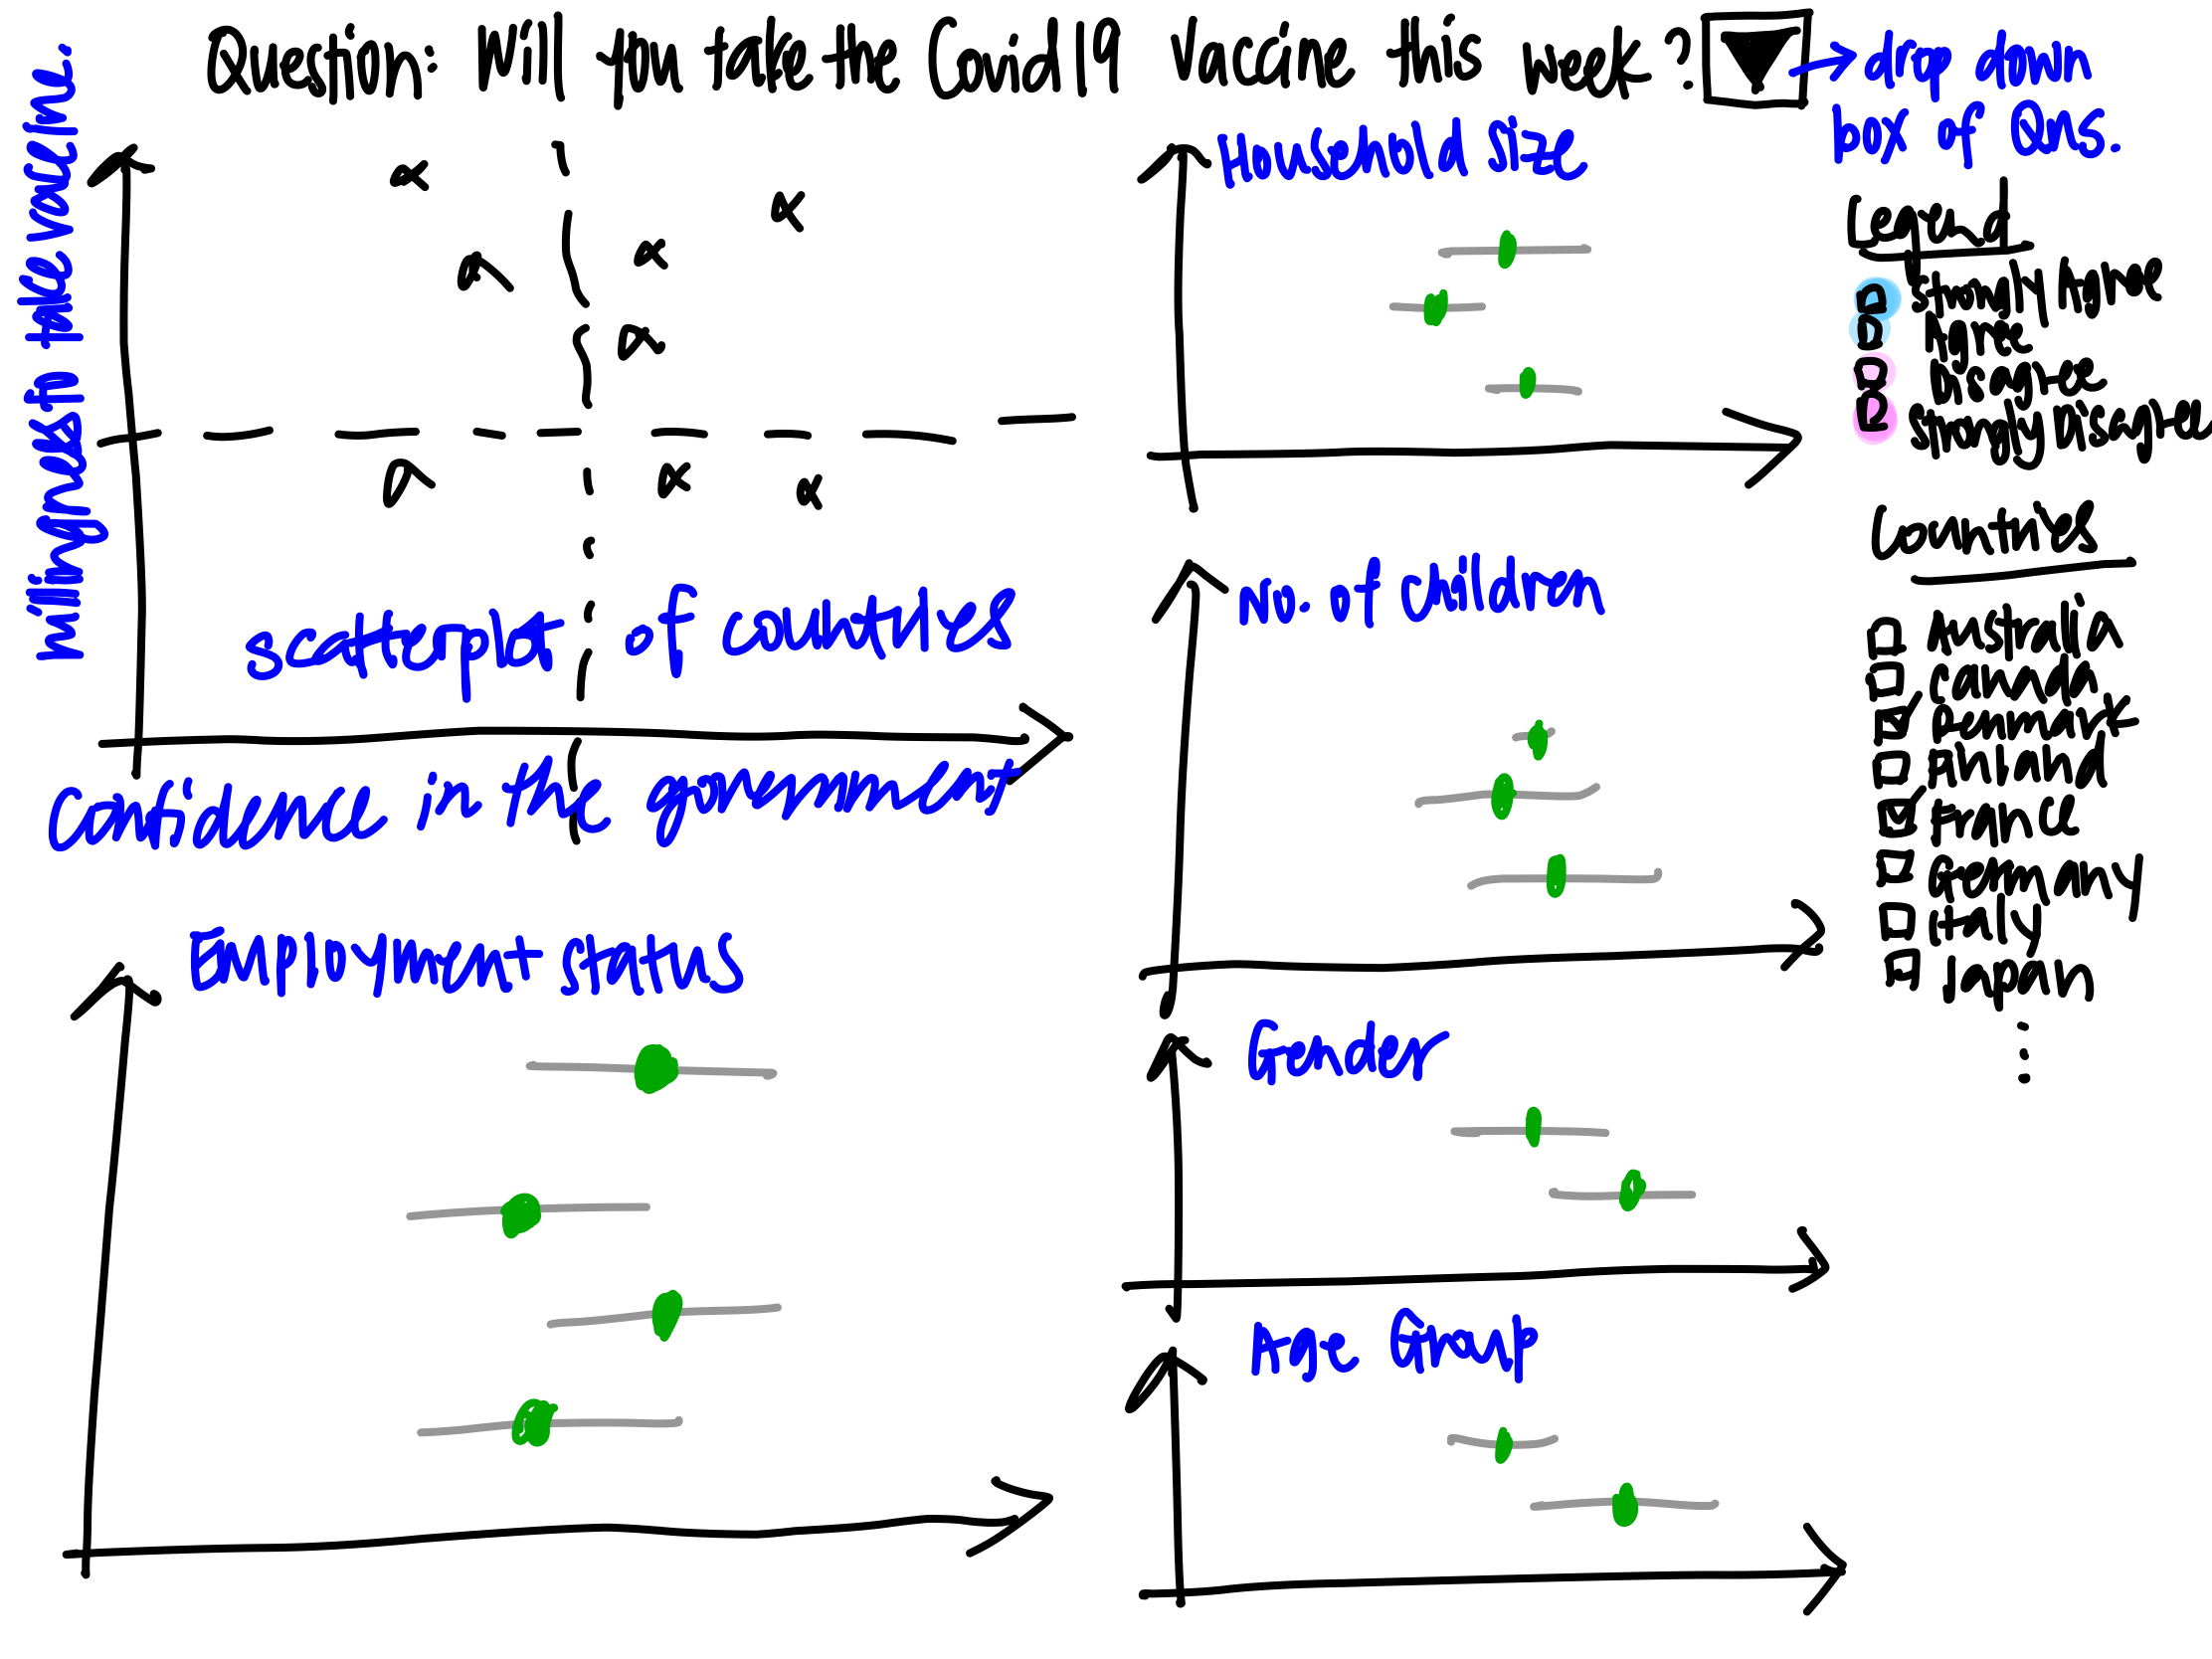 Question: Will you take the Covid 19 Vaccine this week?
drop down
box of Qxns.
willingness to take vaccine.
scatterplot of countries
Confidence in the government
Employment status
Household size
No. of children
Gender
Age Group
Legend
strongly Agree
Agree
Disagree
Strongly Disagree
Countries
Australia
Canada
Denmark
Finland
France
Germany
Italy
Japan